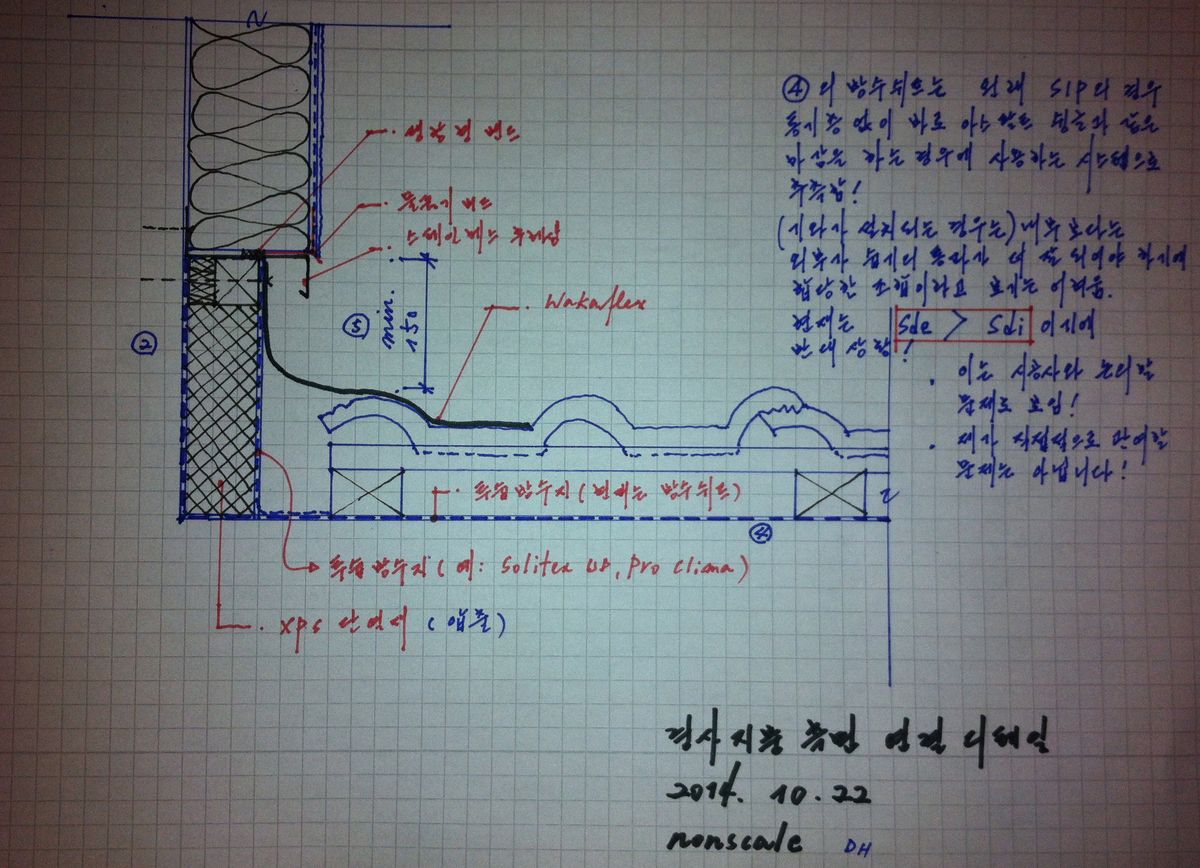 ④의 방수쉬트는 원래 SIP의 경우
통기층 없이 바로 아스팔트 슁글과 같은
마감을 하는 경우에 사용하는 시스템으로
추측함!
(기와가 설치되는 경우는) 내부보다는
외부가 습기의 투과가 더 잘 되어야 하기에
합당한 조합이라고 보기는 어려움.
현재는 Sde > Sdi 이기에
반대 상황!
. 이는 시공사와 논의할
문제로 보임!
. 제가 직접적으로 관여할
문제는 아닙니다!
. 물끊기 버드
. 스테인레스 후레싱
③ min. 150
. Wakaflex
②
. 투습방수지 (현재는 방수쉬트)
④
투습방수지 (예: Solitex UD, Pro Clima)
. XPS 단열재 (압출)
경사지붕 측면 연결 디테일
2014. 10. 22
nonscale DH